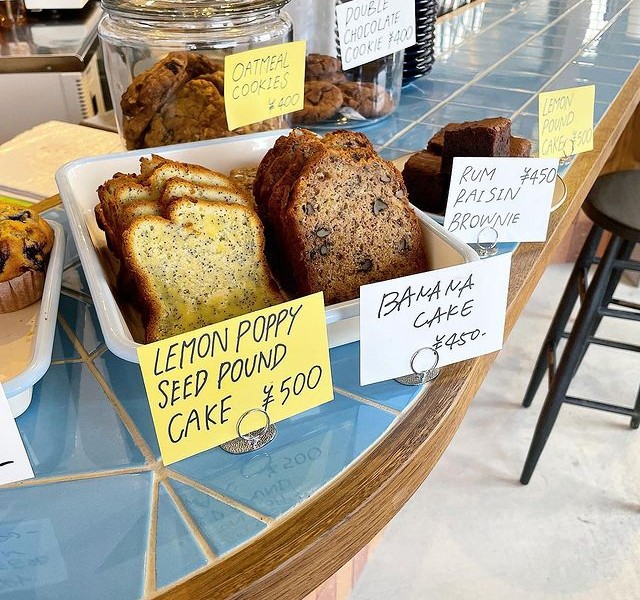 DOUBLE
CHOCOLATE
COOKIE ¥400
OATMEAL
COOKIES
¥400
LEMON
POUND
CAKE ¥500
RUM ¥450
RAISIN
BROWNIE
BANANA
CAKE
¥450-
LEMON POPPY
SEED POUND
CAKE ¥500